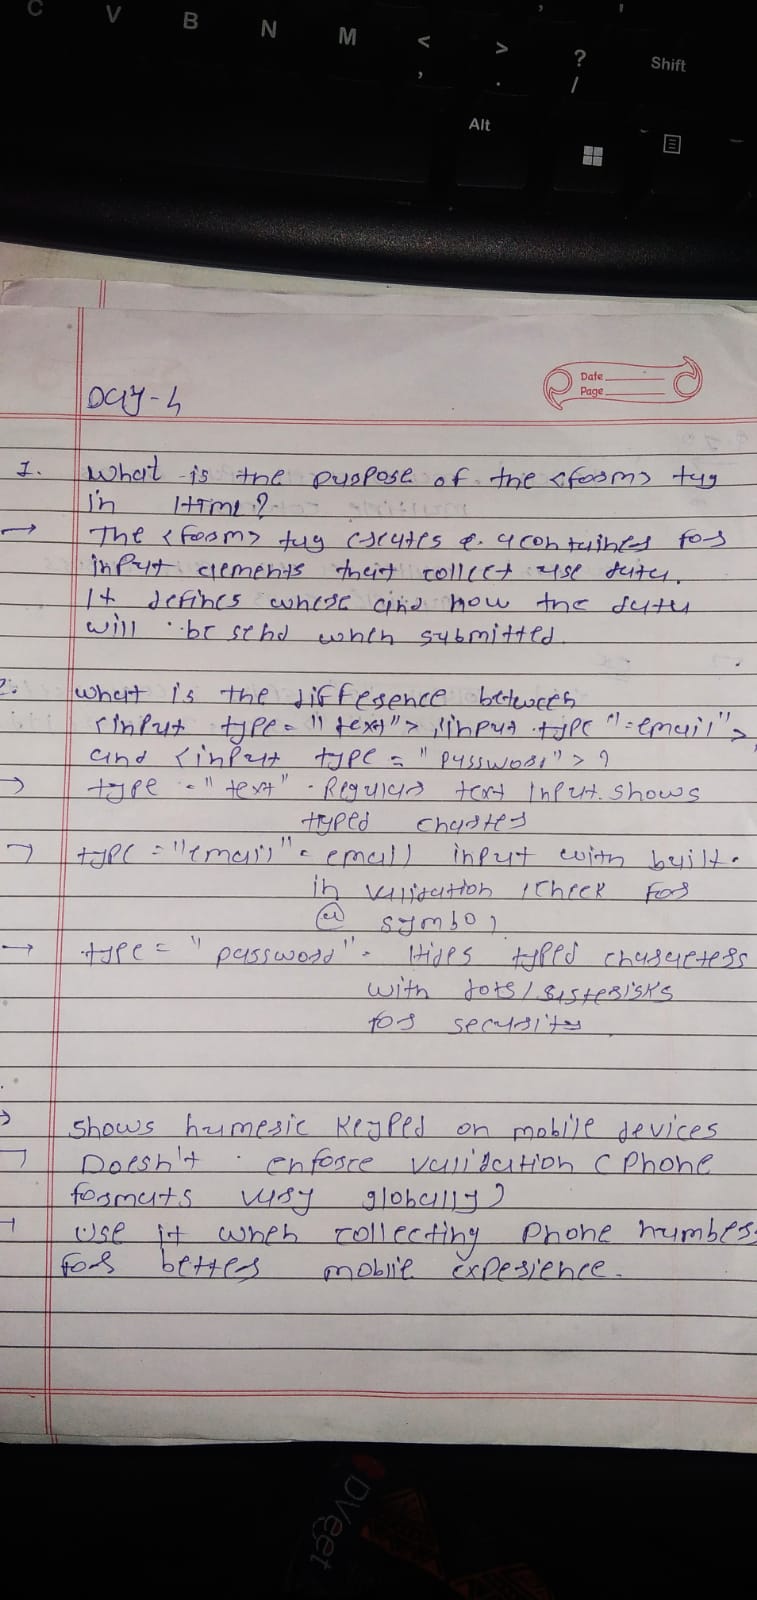 C V B N M < , > . ? / Shift
Alt
Date
Page
Day-4
1. What is the purpose of the <form> tag
in HTML?
→ The <form> tag creates a container for
input elements that collect use data.
It defines where and how the data
will be send when submitted.
2. what is the difference between
<input type="text">, input type "=email">
and <input type="password">?
→ type ="text" - Regular text Input. shows
typed
→ type ="email" - email input with built-
in validation check for
@ symbol
→ type = "password" - Hides typed characters
with dots/asterisks
for security
→ shows numeric keyped on mobile devices
→ Doesn't enforce validation (phone
formats vary globally)
→ Use it when collecting phone number
for better mobile experience.
DVeet